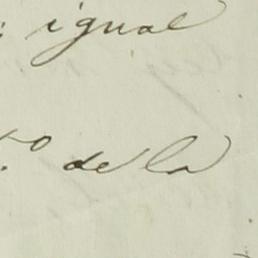 igual
de la